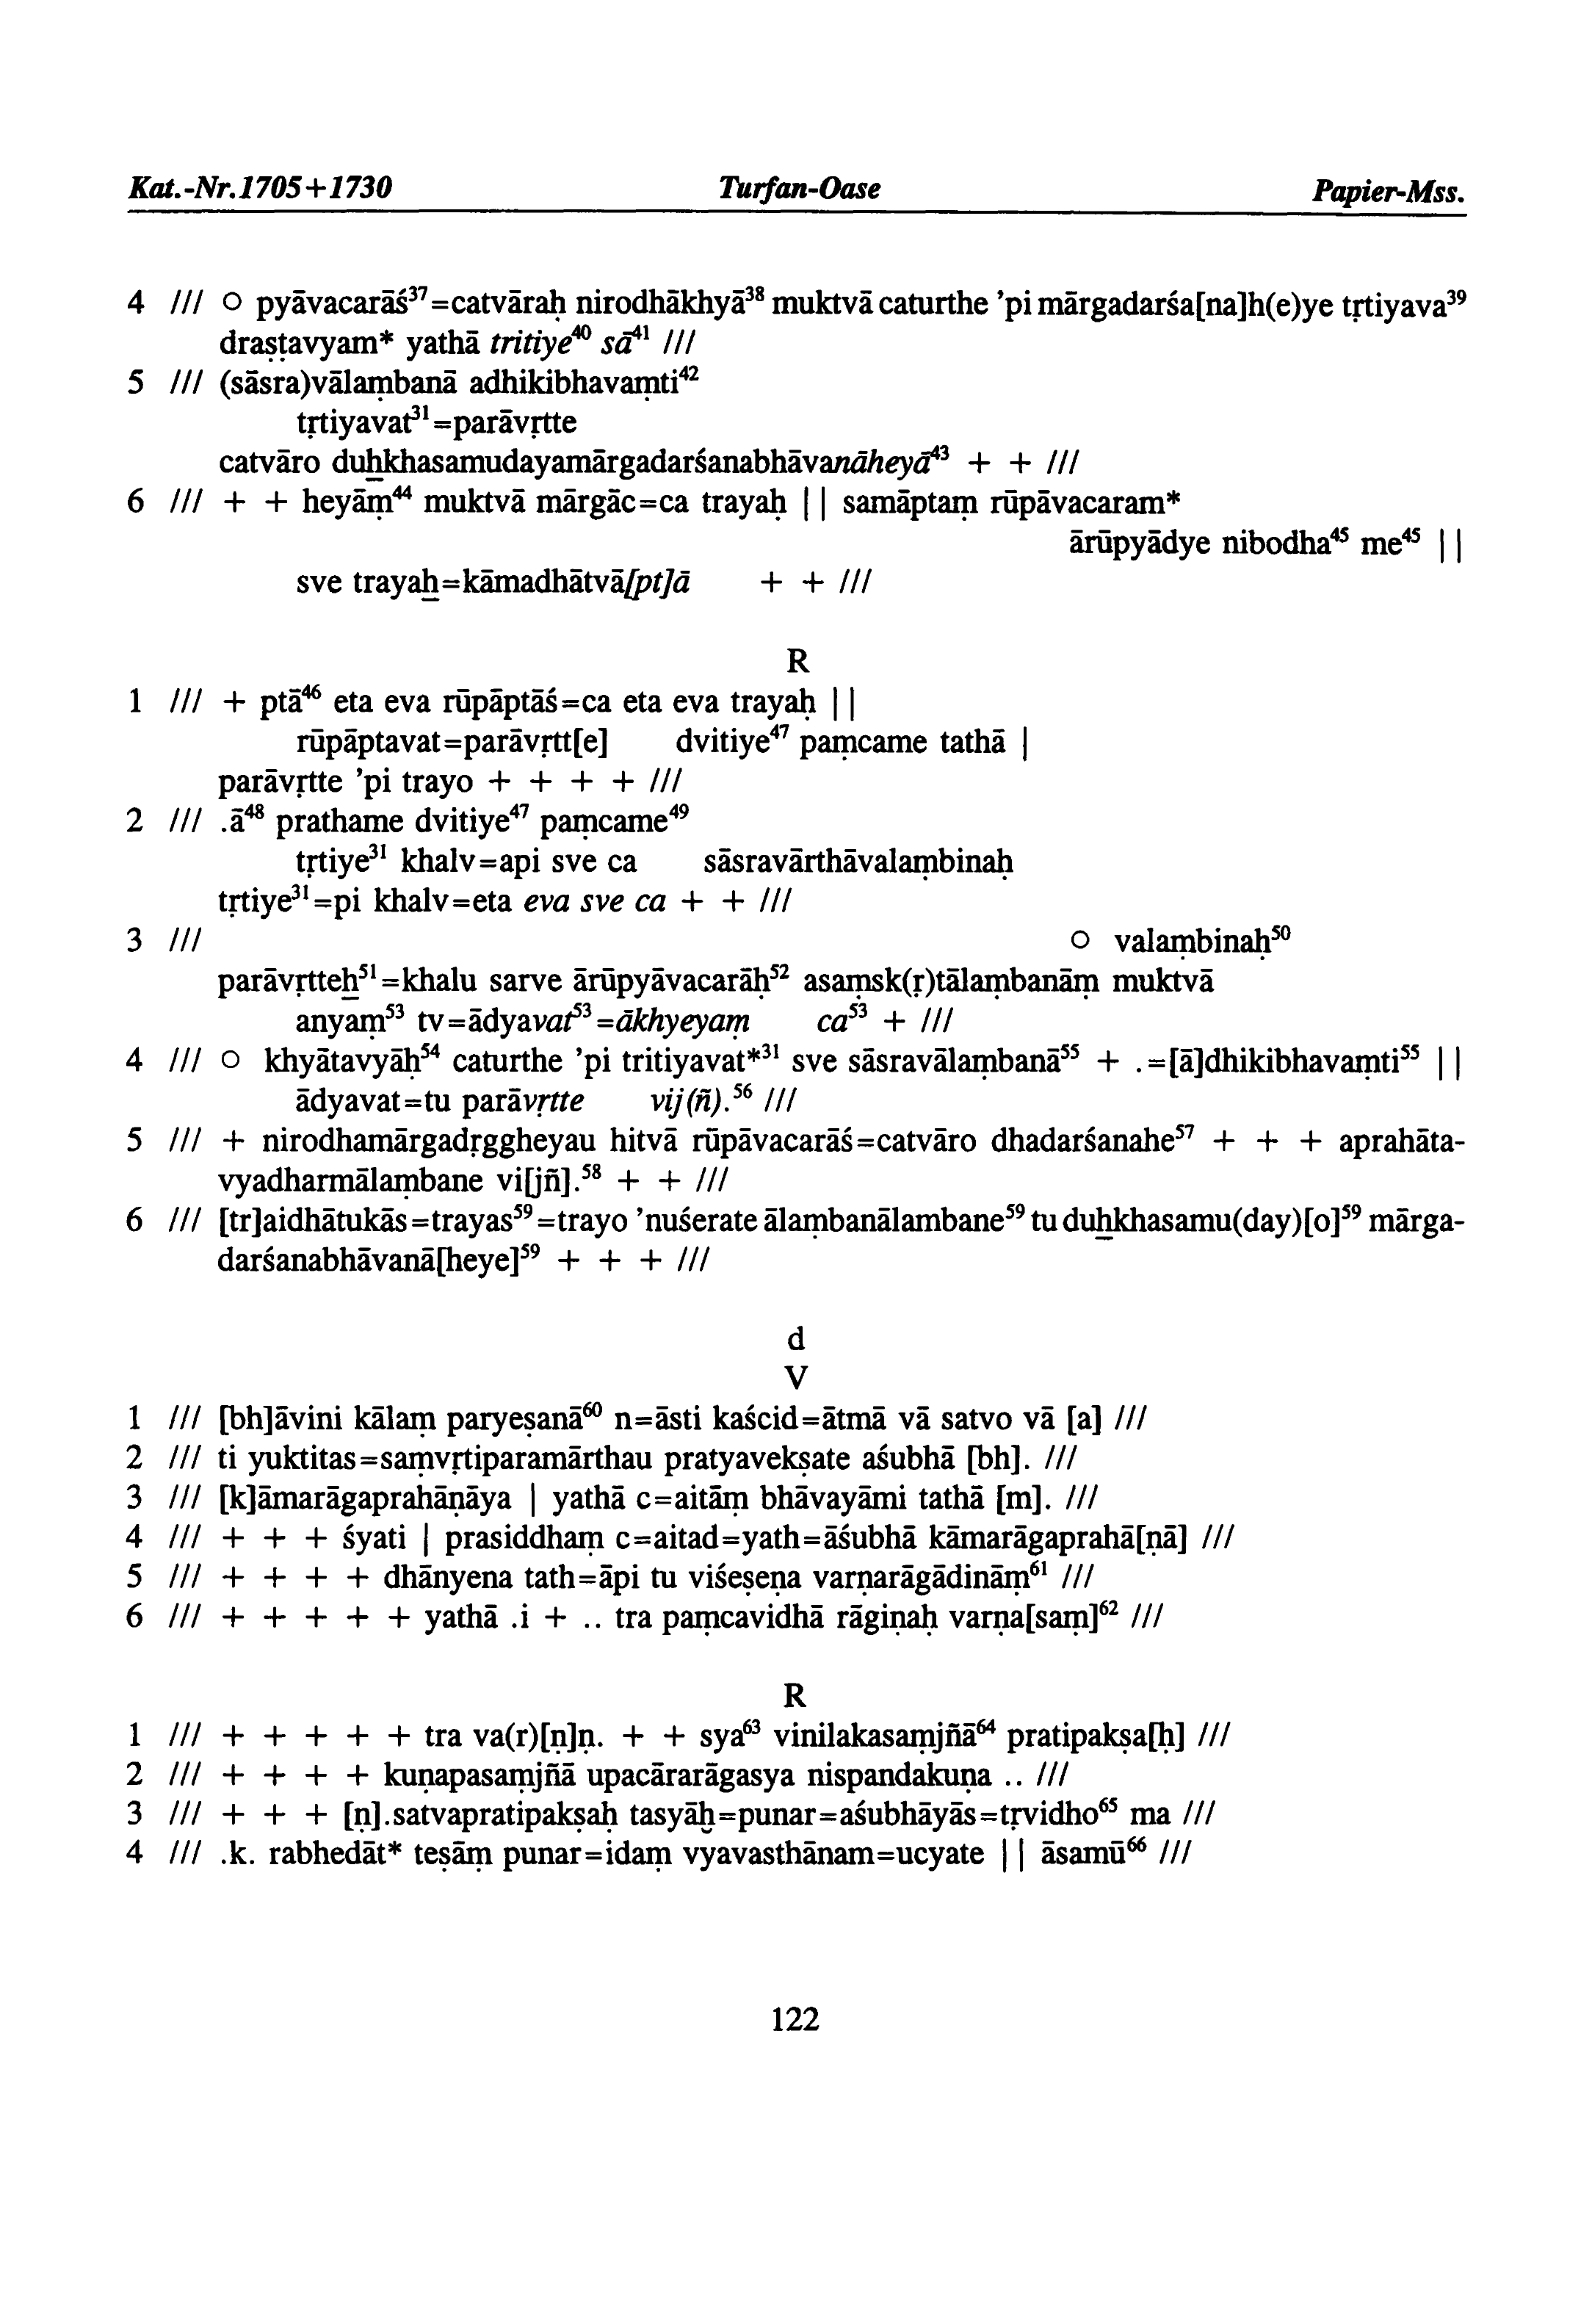 Kat.-Nr.1705+1730 Turfan-Oase Papier-Mss.
4 /// ○ pyāvacarāś³⁷=catvāraḥ nirodhākhyā³⁸ muktvā caturthe ’pi mārgadarśa[na]h(e)ye tṛtiyava³⁹
draṣṭavyam* yathā tritiye⁴⁰ sā⁴¹ ///
5 /// (sāsra)vālaṃbanā adhikibhavaṃti⁴²
tṛtiyavat³¹=parāvṛtte
catvāro duẖkhasamudayamārgadarśanabhāvanāheyā⁴³ + + ///
6 /// + + heyāṃ⁴⁴ muktvā mārgāc=ca trayaḥ || samāptaṃ rūpāvacaram*
ārūpyādye nibodha⁴⁵ me⁴⁵ ||
sve trayaẖ=kāmadhātvā[pt]ā + + ///
R
1 /// + ptā⁴⁶ eta eva rūpāptāś=ca eta eva trayaḥ ||
rūpāptavat=parāvṛtt[e] dvitiye⁴⁷ paṃcame tathā |
parāvṛtte ’pi trayo + + + + ///
2 /// .ā⁴⁸ prathame dvitiye⁴⁷ paṃcame⁴⁹
tṛtiye³¹ khalv=api sve ca sāsravārthāvalaṃbinaḥ
tṛtiye³¹=pi khalv=eta eva sve ca + + ///
3 /// ○ valaṃbinaḥ⁵⁰
parāvṛtteẖ⁵¹=khalu sarve ārūpyāvacarāḥ⁵² asaṃsk(ṛ)tālaṃbanāṃ muktvā
anyaṃ⁵³ tv=ādyavat⁵³=ākhyeyaṃ ca⁵³ + ///
4 /// ○ khyātavyāḥ⁵⁴ caturthe ’pi tritiyavat*³¹ sve sāsravālaṃbanā⁵⁵ + .=[ā]dhikibhavaṃti⁵⁵ ||
ādyavat=tu parāvṛtte vij(ñ).⁵⁶ ///
5 /// + nirodhamārgadṛggheyau hitvā rūpāvacarāś=catvāro dhadarśanahe⁵⁷ + + + aprahāta-
vyadharmālaṃbane vi[jñ].⁵⁸ + + ///
6 /// [tr]aidhātukās=trayas⁵⁹=trayo ’nuśerate ālaṃbanālambane⁵⁹ tu duẖkhasamu(day)[o]⁵⁹ mārga-
darśanabhāvanā[heye]⁵⁹ + + + ///
d
V
1 /// [bh]āvini kālaṃ paryeṣanā⁶⁰ n=āsti kaścid=ātmā vā satvo vā [a] ///
2 /// ti yuktitas=saṃvṛtiparamārthau pratyavekṣate aśubhā [bh]. ///
3 /// [k]āmarāgaprahāṇāya | yathā c=aitāṃ bhāvayāmi tathā [m]. ///
4 /// + + + śyati | prasiddhaṃ c=aitad=yath=āśubhā kāmarāgaprahā[ṇā] ///
5 /// + + + + dhānyena tath=āpi tu viśeṣeṇa varṇarāgādināṃ⁶¹ ///
6 /// + + + + + yathā .i + .. tra paṃcavidhā rāgiṇaḥ varṇa[saṃ]⁶² ///
R
1 /// + + + + + tra va(r)[ṇ]ṇ. + + sya⁶³ vinilakasaṃjñā⁶⁴ pratipakṣa[ḥ] ///
2 /// + + + + kuṇapasaṃjñā upacārarāgasya nispandakuṇa .. ///
3 /// + + + [ṇ].satvapratipakṣaḥ tasyāḫ=punar=aśubhāyās=tṛvidho⁶⁵ ma ///
4 /// .k. rabhedāt* teṣāṃ punar=idaṃ vyavasthānam=ucyate || āsamū⁶⁶ ///
122